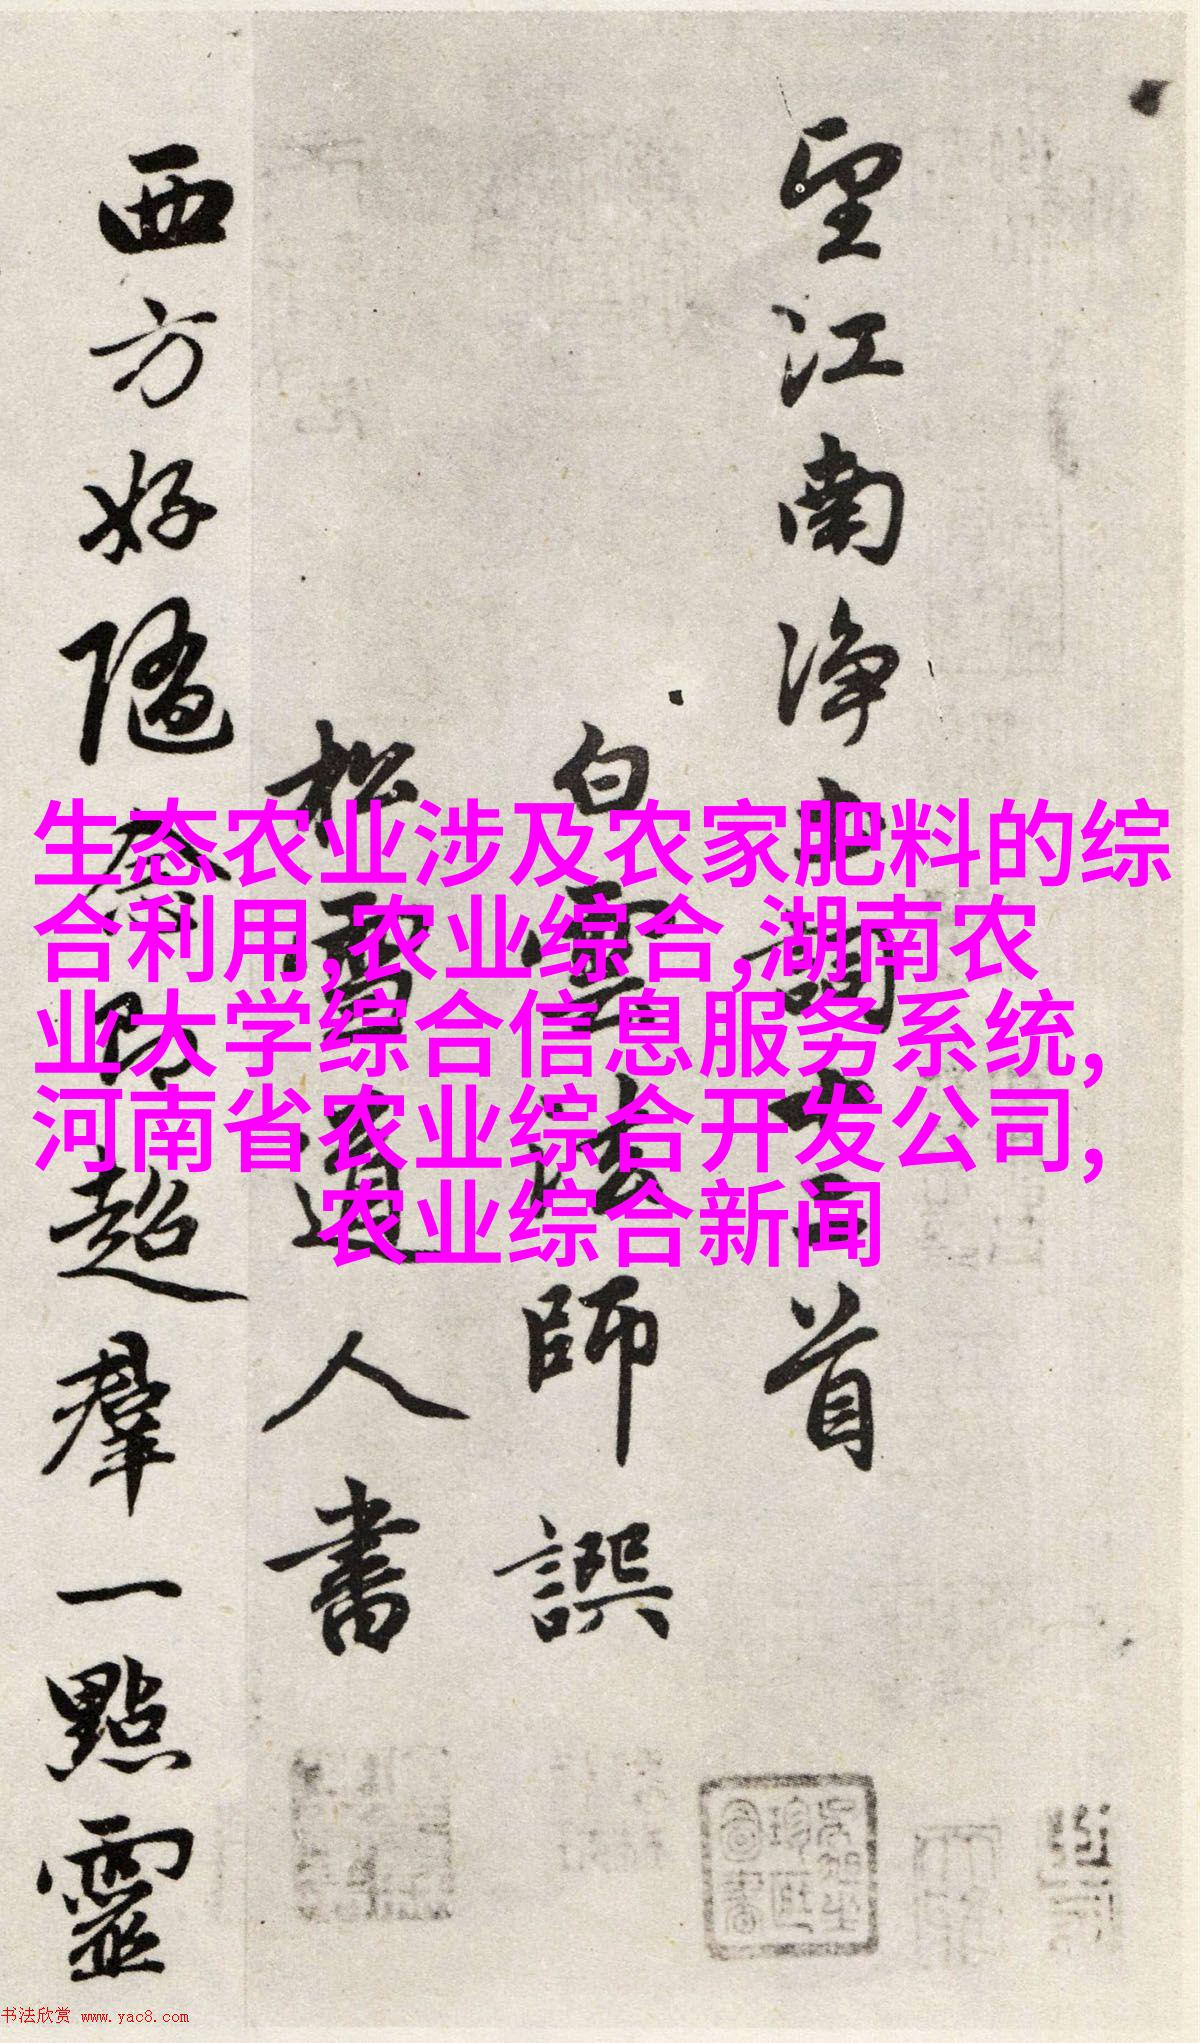 望江南淨土詞十二首
白雲法師譔
松雪道人書
西方好隨念即超羣一點靈
生态农业涉及农家肥料的综
合利用,农业综合,湖南农
业大学综合信息服务系统,
河南省农业综合开发公司,
农业综合新闻
书法欣赏 www.yac8.com